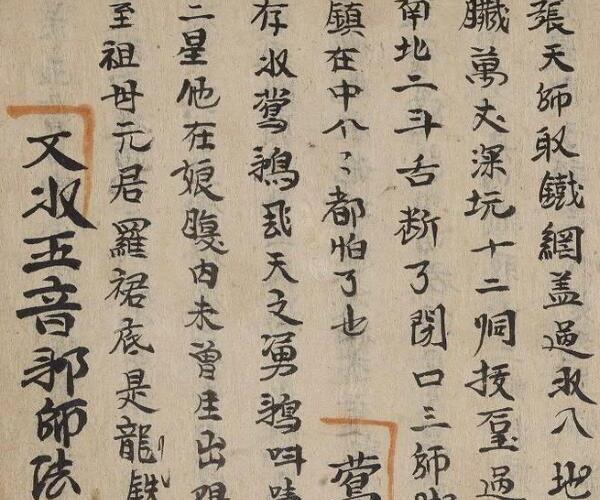 張天師取鐵網盖過收入地
臟萬丈深坑十二峒技 過
南北二斗舌断了閉口三師
鎮在中个〻都怕了也
鶯
存收鴛鵝飛天文勇鵝呌
二星他在娘腹内未曽生出
至祖母元君羅裙底是龍
又收五音邪師法